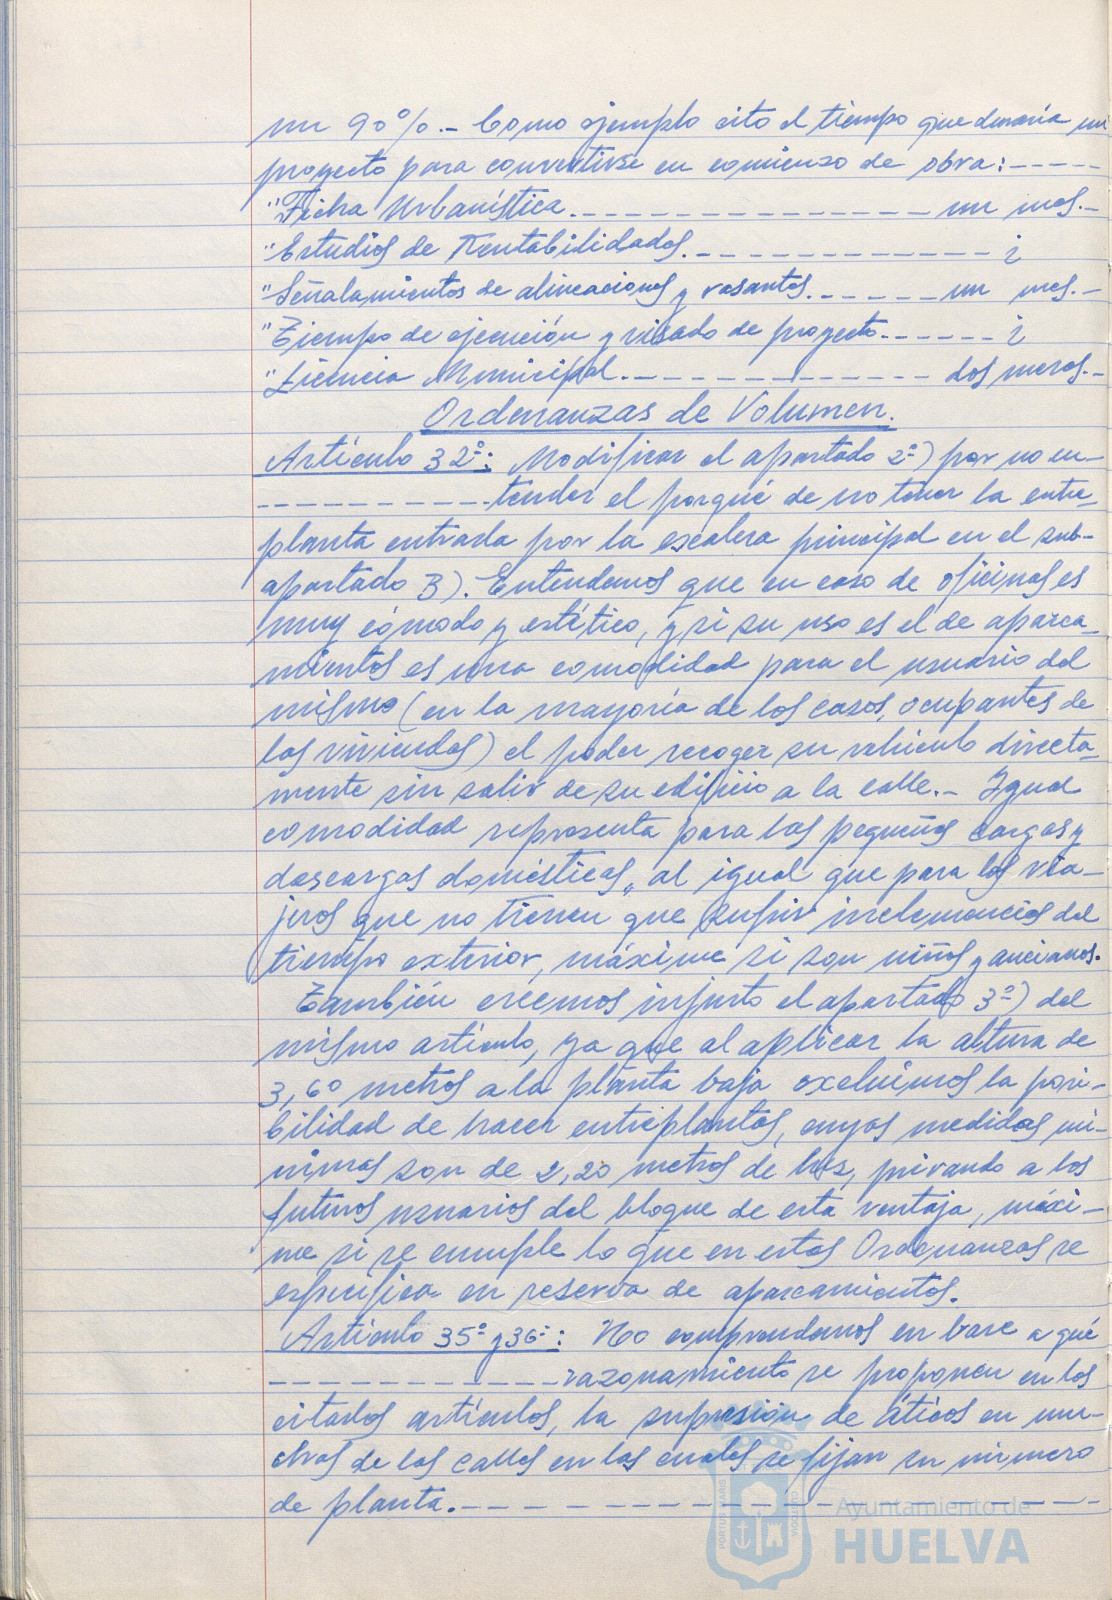 un 90%.- Como ejemplo cito el tiempo que demoraría un
proyecto para convertirse en comienzo de obra:-----
"Ficha Urbanística.---------------- un mes.-
"Estudios de Rentabilidades.------------- ¿
"Señalamientos de alineaciones y rasantes.------ un mes.-
"Tiempo de ejecución y visado de proyecto.------ ¿
"Licencia Municipal.-------------- dos meses.-
Ordenanzas de Volumen.
Artículo 32º: Modificar el apartado 2º) por no en-
-----------tender el porqué de no tener la entre-
planta entrada por la escalera principal en el sub-
apartado B). Entendemos que en caso de oficinas es
muy cómodo y estético, y si su uso es el de aparca-
mientos es una comodidad para el usuario del
mismo (en la mayoría de los casos, ocupantes de
las viviendas) el poder recoger su vehículo directa-
mente sin salir de su edificio a la calle.- Igual
comodidad representa para las pequeñas cargas y
descargas domésticas, al igual que para los via-
jeros que no tienen que sufrir inclemencias del
tiempo exterior, máxime si son niños y ancianos.
También creemos injusto el apartado 3º) del
mismo artículo, ya que al aplicar la altura de
3,60 metros a la planta baja excluimos la posi-
bilidad de hacer entreplantas, cuyas medidas mí-
nimas son de 2,20 metros de luz, privando a los
futuros usuarios del bloque de esta ventaja, máxi-
me si se cumple lo que en estas Ordenanzas se
especifica en reserva de aparcamientos.
Artículo 35º y 36º: No comprendemos en base a qué
------------razonamiento se proponen en los
citados artículos, la supresión de áticos en mu-
chas de las calles en las cuales se fijan su número
de planta.-----------------
Ayuntamiento de
HUELVA